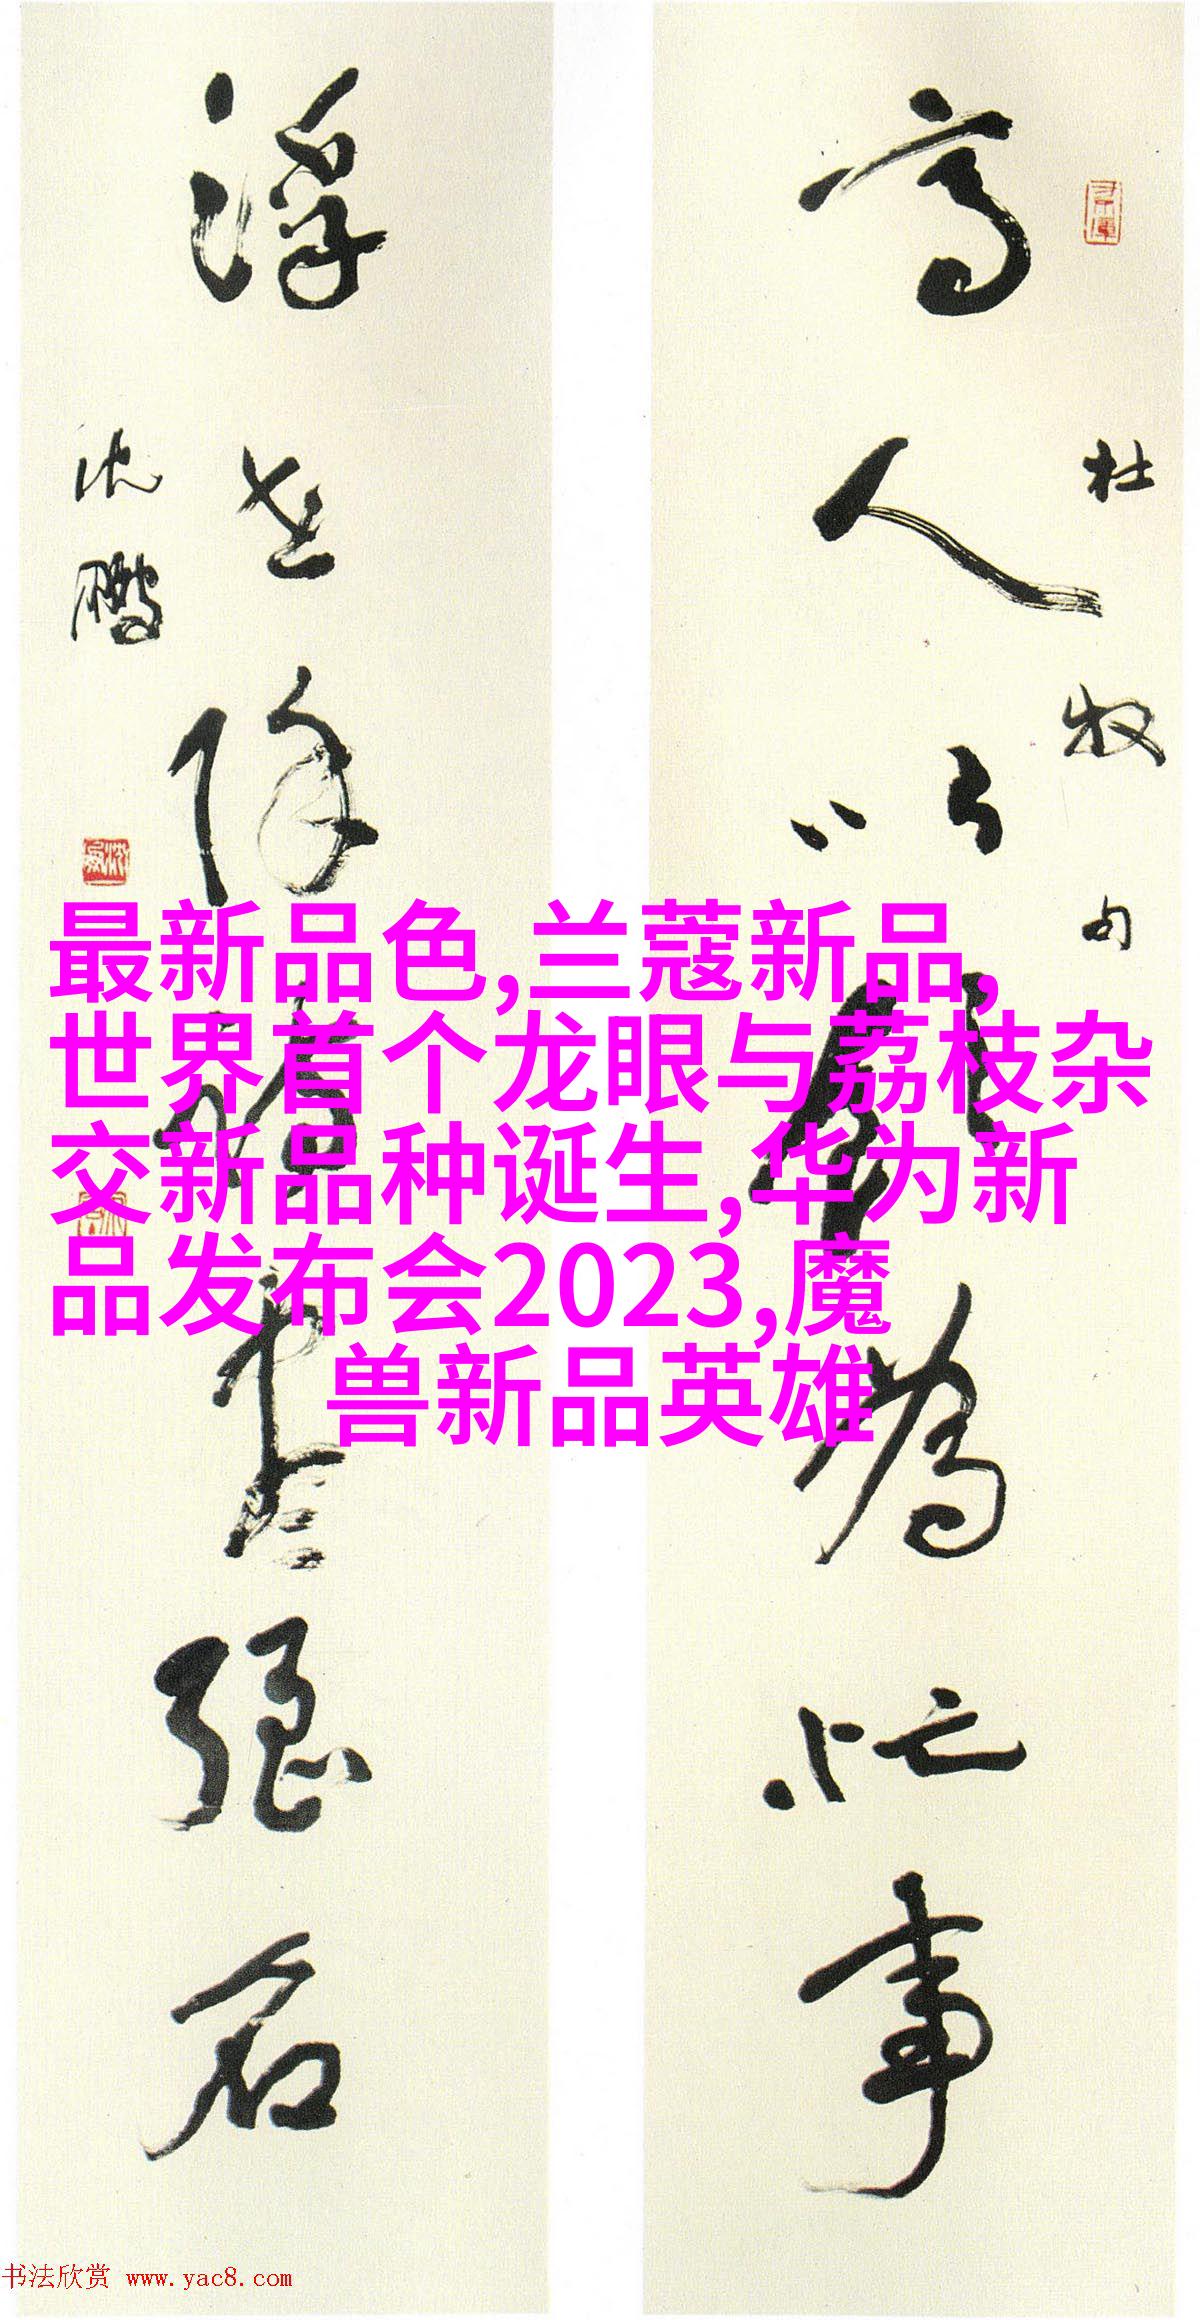 高人以饮为忙事
杜牧句
浮世除诗尽强名
沈鹏
最新品色,兰蔻新品,
世界首个龙眼与荔枝杂
交新品种诞生,华为新
品发布会2023,魔
兽新品英雄
书法欣赏 www.yac8.com